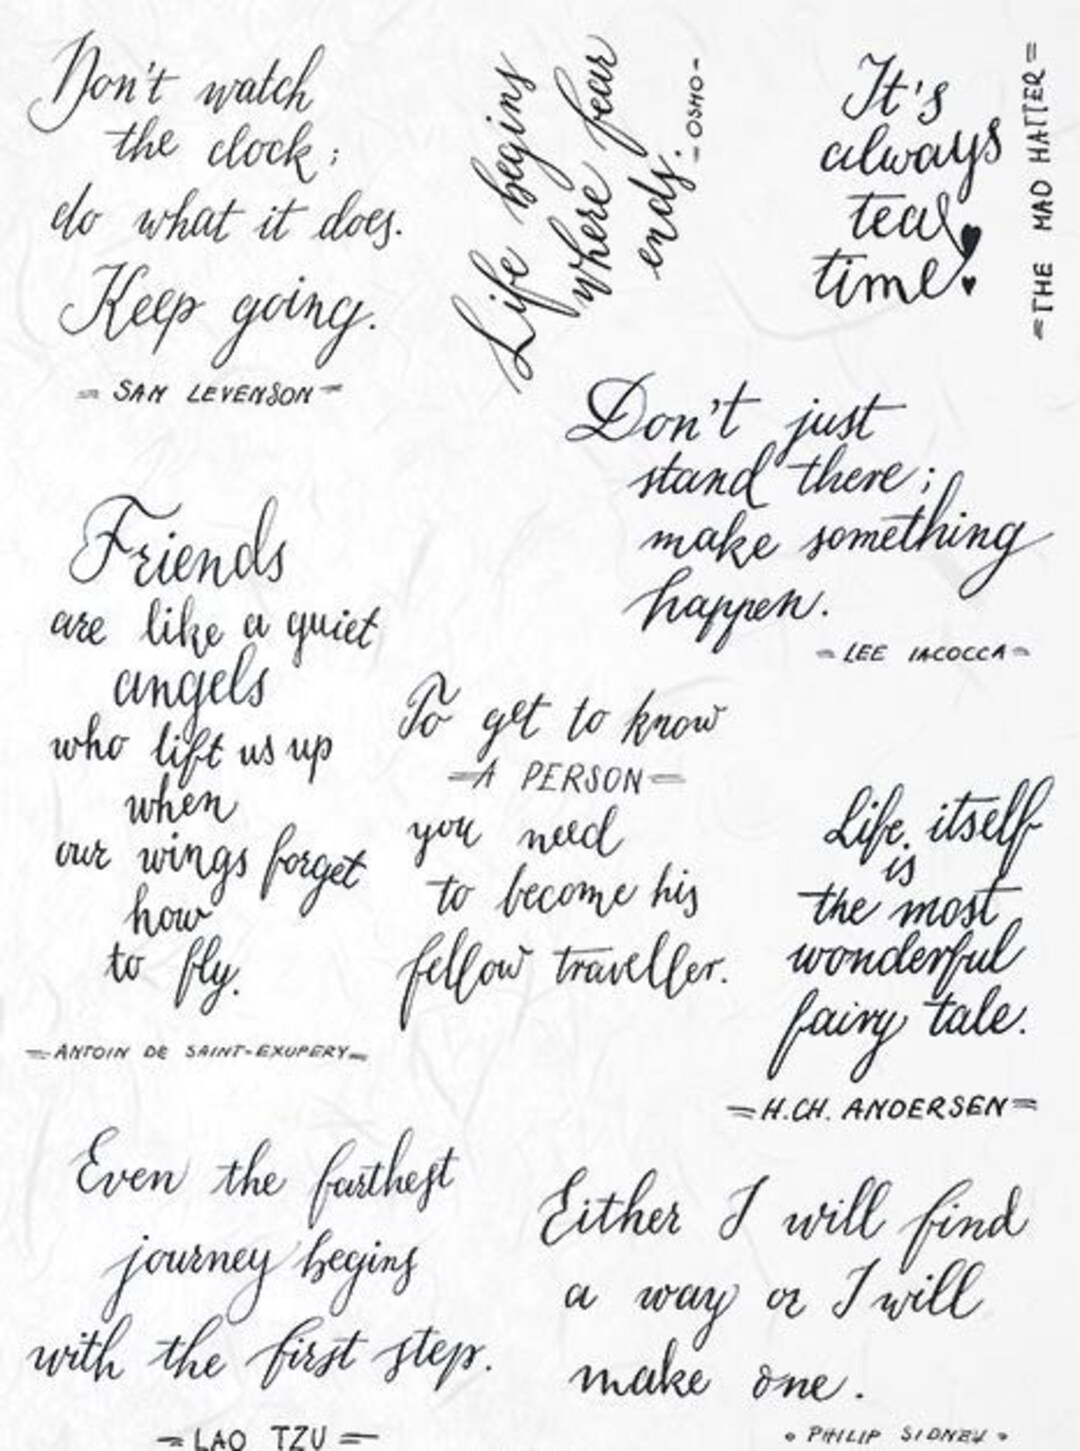 Don't watch
the clock;
do what it does.
Keep going.
= SAM LEVENSON =
Life begins
where fear
ends.
- OSHO -
It's
always
tea
time.
= THE MAD HATTER =
Don't just
stand there;
make something
happen.
= LEE IACOCCA =
Friends
are like a quiet
angels
who lift us up
when
our wings forget
how
to fly.
= ANTOIN DE SAINT-EXUPERY =
To get to know
= A PERSON =
you need
to become his
fellow traveller.
Life itself
is
the most
wonderful
fairy tale.
= H.CH. ANDERSEN =
Even the farthest
journey begins
with the first step.
= LAO TZU =
Either I will find
a way or I will
make one.
• PHILIP SIDNEY •